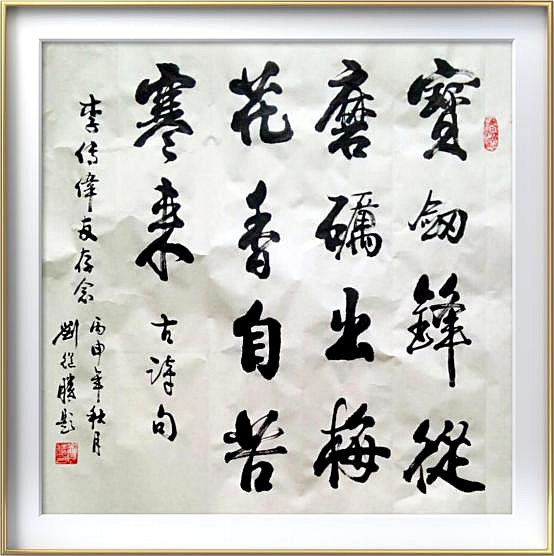 寶劍鋒從
磨礪出梅
花香自苦
寒來 古詩句
李傳偉友存念 丙申年秋月
劉 勝題